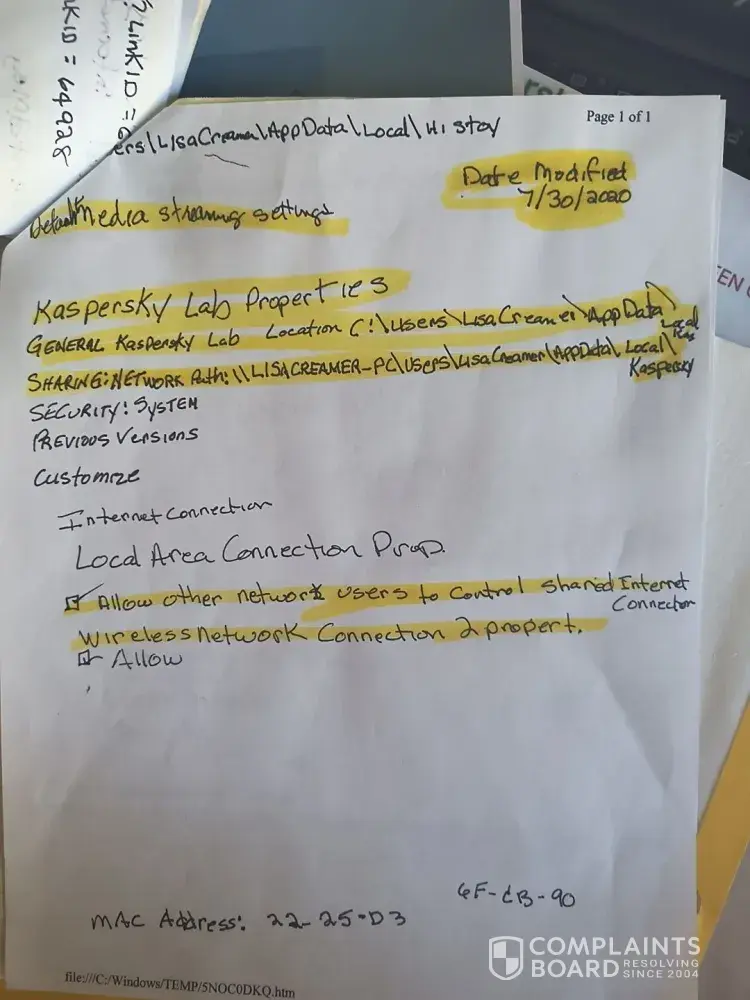 ?LinkID=6
KID=64928
ers\LIsaCreamer\AppData\Local\Histoy
Page 1 of 1
Date Modified
7/30/2020
Default Media streaming settings
Kaspersky Lab Properties
GENERAL Kaspersky Lab Location C:\Users\LisaCreamer\AppData\
Local
Kas
SHARING: NETWORK Path: \\LISACREAMER-PC\Users\LisaCreamer\AppData\Local\
Kaspersky
SECURITY: SYSTEM
PREVIOUS Versions
Customize
Internet Connection
Local Area Connection Prop.
Allow other network users to control shared Internet
Connection
Wireless Network Connection 2 propert.
Allow
6F-CB-90
MAC Address: 22-25-D3
file:///C:/Windows/TEMP/5NOC0DKQ.htm
COMPLAINTS
BOARD RESOLVING
SINCE 2004